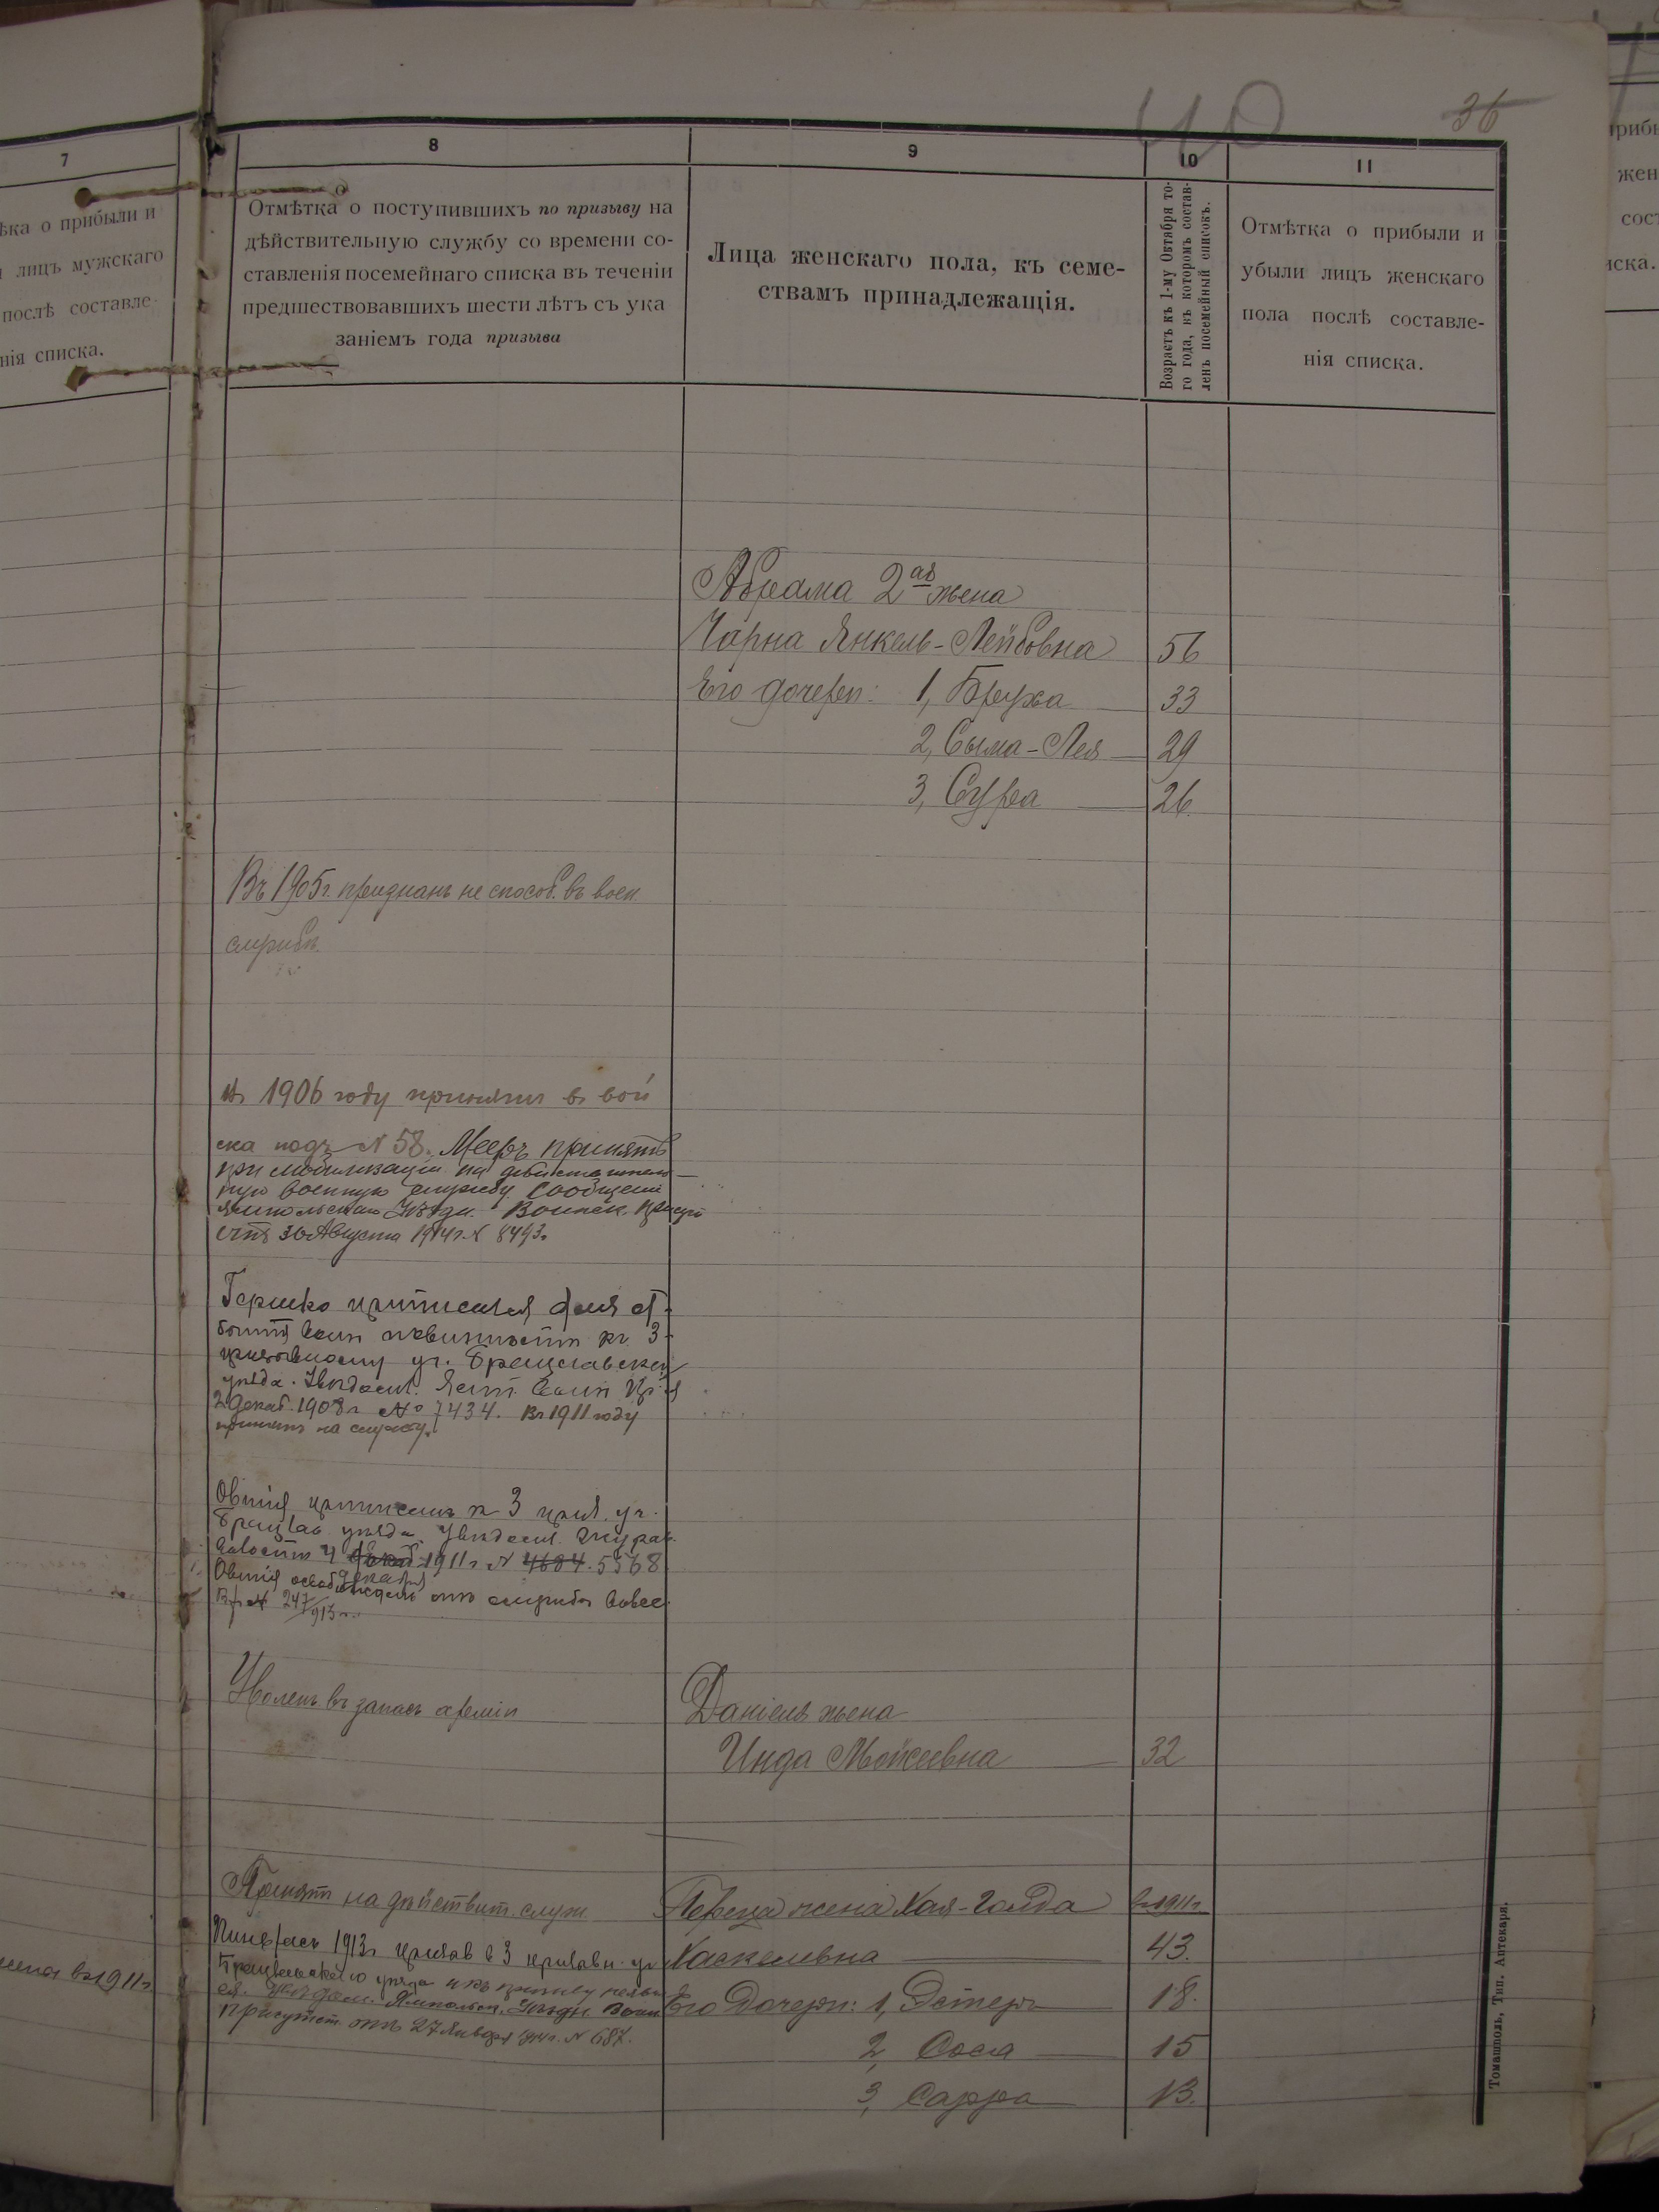 40
36
7
ѣка о прибыли и
лицъ мужскаго
послѣ составле
нія списка.
8
Отмѣтка о поступившихъ по призыву на
дѣйствительную службу со времени со-
ставленія посемейнаго списка въ теченіи
предшествовавшихъ шести лѣтъ съ ука
заніемъ года призыва
9
Лица женскаго пола, къ семе-
ствамъ принадлежащія.
10
Возрастъ къ 1-му Октября то-
го года, въ которомъ состав-
ленъ посемейный списокъ.
11
Отмѣтка о прибыли и
убыли лицъ женскаго
пола послѣ составле-
нія списка.
Абрама 2ая жена
Чарна Янкель-Лейбовна 56
Его дочери: 1, Бруха 33
2, Сыма-Лея 29
3, Сура 26
Въ 1905г. признанъ не способ. въ воен.
службѣ.
Въ 1906 году принятъ въ вой
ска подъ N 58. Мееръ принятъ
при мобилизаціи на дѣйствитель-
ную военную службу. Сообщеніе
Ямпольскаго Уѣздн. Воинск. Присут
ствія 30 Августа 1914г. N 8493.
Гершко приписался для от-
воинск повинности къ 3
призывному уч. Брацлавскаго
уѣзда. Увѣдомл. Ямп. Воин Пр
2 Декаб. 1908 г № 7434. Въ 1911 году
принятъ на службу.
Овшія приписанъ къ 3 приз. уч.
Брацлав. уѣзда Увѣдомл.
4 1911 г N 4684. 5568
декабря
Овшія освобожденъ отъ службы вовсе.
N 247/913 г.
Уволенъ въ запасъ арміи
Даніеля жена
Инда Мошковна 32
Принятъ на дѣйствит. служ.
Переца жена Хая-Голда въ 1911г.
Хаскелевна 43.
Пинхасъ 1913г призыв в 3 призывн. уч
Брацлавскаго уѣзда и къ призыву неяви
ся. Увѣдом. Ямпольск. Уѣздн. Воин
присутст. отъ 27 Января 1914г. N 687.
Его Дочери: 1, Эстеръ 18.
2, Сося 15
3, Сарра 13.
въ 1911г
Томашполь, Тип. Аптекаря.